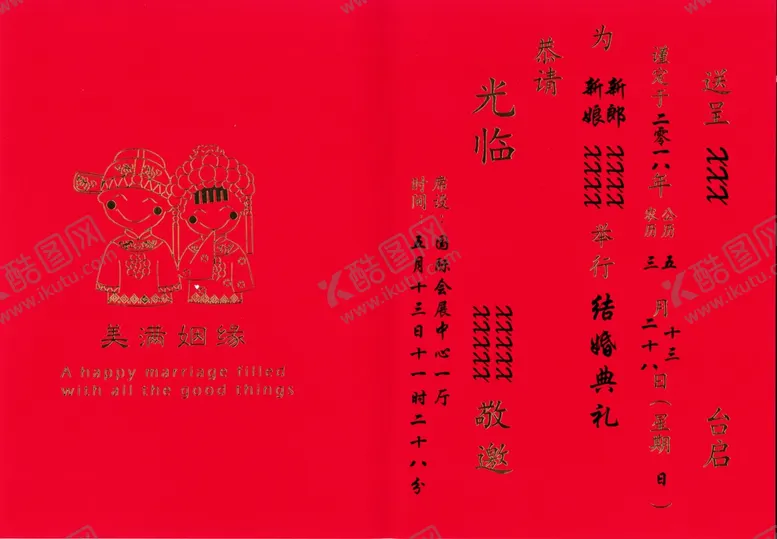 美满姻缘
A happy marriage filled
with all the good things
送呈 XXX 台启
谨定于二零一八年 公历 五 月 十三 日(星期 日)
农历 三 二十八
为 新郎 XXXX 举行 结婚典礼
新娘 XXXX
恭请
光临
XXXXX 敬邀
XXXXX
席设:国际会展中心一厅
时间 五月十三日十一时二十八分
酷图网
www.ikutu.com